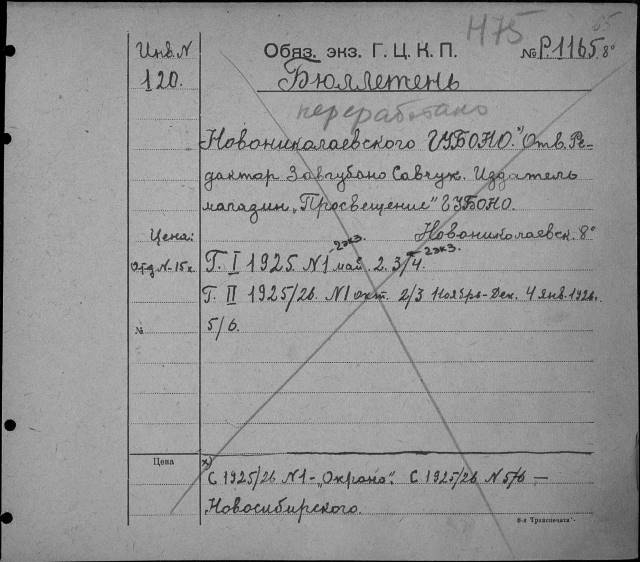 Н75
65
Инв. N
Обяз. экз. Г. Ц. К. П.
№ Р.1165. 8°
120.
Бюллетень
переработано
Новониколаевского ГУБОНО." Отв. Ре-
дактор Завгубоно Савчук. Издатель
магазин „Просвещение" ГУБОНО.
Новониколаевск. 8°
Цена:
-2экз.
2экз.
Отд. N-15к.
Г. I 1925. N1 май. 2. 3/4.
Г. II 1925/26. N1 окт. 2/3 Ноябрь-Дек. 4 янв. 1926.
№
5/6.
Цена
х)
С 1925/26 N1-„Охроно". С 1925/26 N 5/6 —
Новосибирского.
6-я Транспечать.